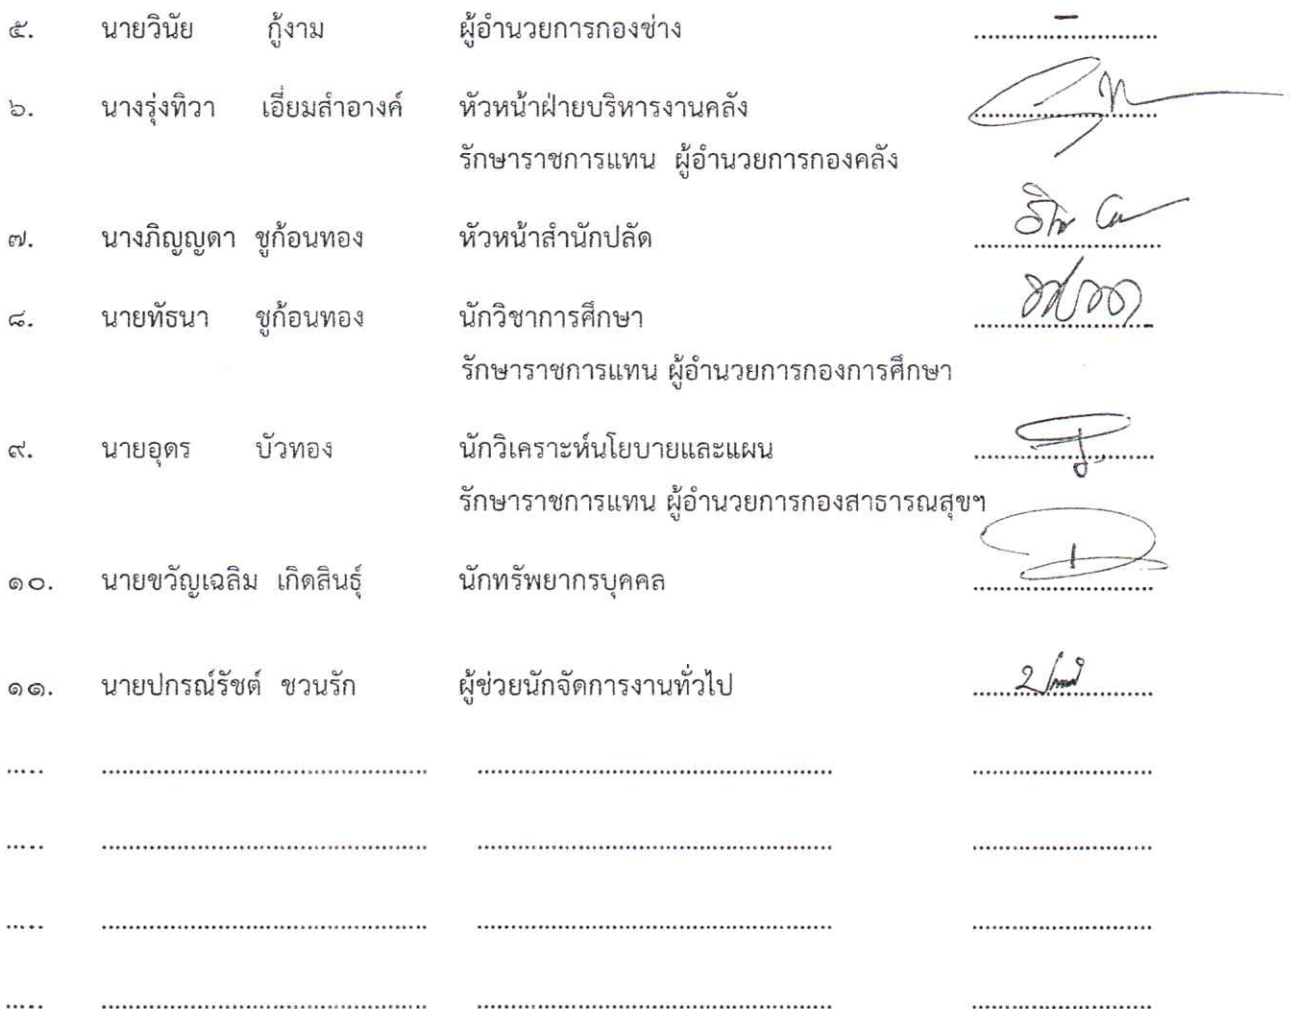 ๕. นายวินัย กู้งาม ผู้อำนวยการกองช่าง –
๖. นางรุ่งทิวา เอี่ยมสำอางค์ หัวหน้าฝ่ายบริหารงานคลัง
รักษาราชการแทน ผู้อำนวยการกองคลัง
๗. นางภิญญดา ชูก้อนทอง หัวหน้าสำนักปลัด
๘. นายทัธนา ชูก้อนทอง นักวิชาการศึกษา
รักษาราชการแทน ผู้อำนวยการกองการศึกษา
๙. นายอุดร บัวทอง นักวิเคราะห์นโยบายและแผน
รักษาราชการแทน ผู้อำนวยการกองสาธารณสุขฯ
๑๐. นายขวัญเฉลิม เกิดสินธุ์ นักทรัพยากรบุคคล
๑๑. นายปกรณ์รัชต์ ชวนรัก ผู้ช่วยนักจัดการงานทั่วไป